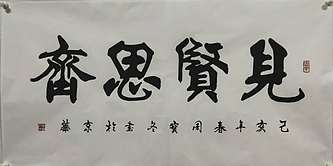 見賢思齊
己亥年春周寶冬書於京華